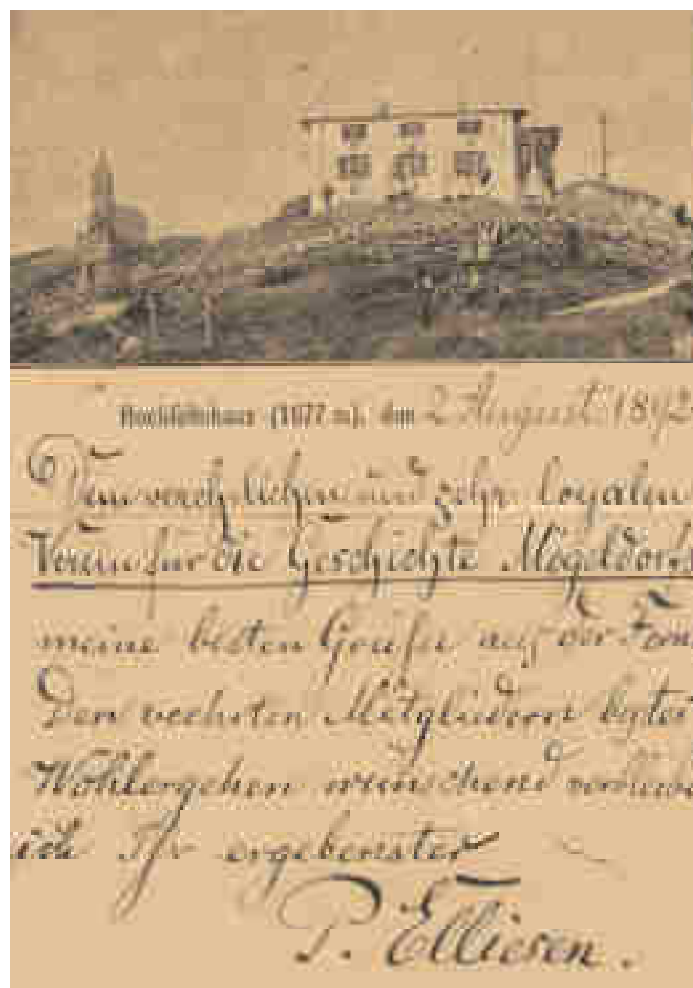 Hochfellnhaus (1677 m), den 2 August 1892
Dem verehrlichen und sehr loyalen
Verein für die Geschichte Mögeldorfs
meine besten Grüße aus der
Den verehrten Mitgliedern
Wohlergehen wünschend
ich Ihr ergebenster
P. Elliesen.